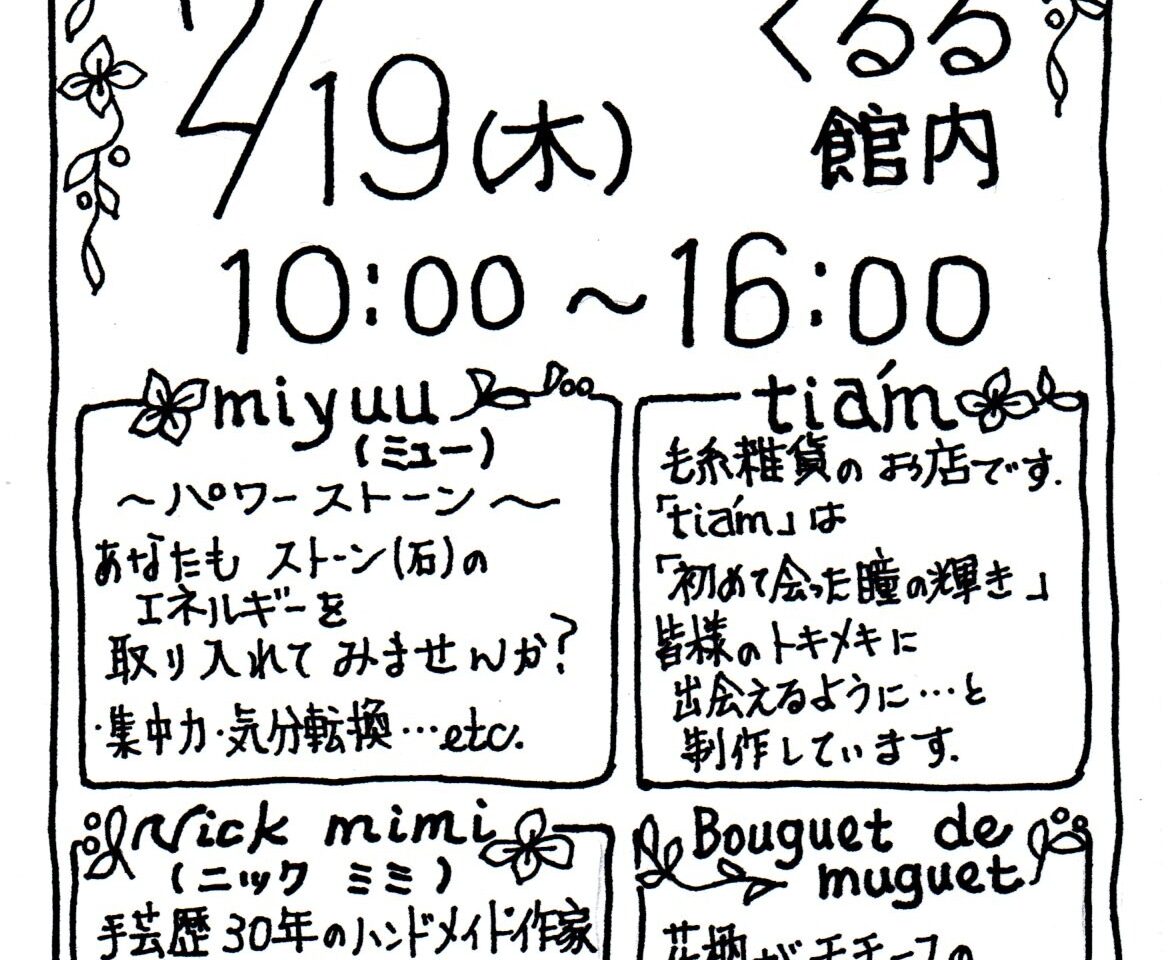 2/19(木)
くるる
館内
10:00～16:00
miyuu
(ミュー)
～パワーストーン～
あなたも ストーン(石)の
エネルギーを
取り入れて みませんか?
・集中力・気分転換…etc.
tiám
毛糸雑貨の お店です.
「tiám」は
「初めて会った瞳の輝き」
皆様のトキメキに
出会えるように…と
制作しています.
Nick mimi
(ニック ミミ)
手芸歴30年のハンドメイド作家
Bouguet de
muguet
花柄がモチーフの